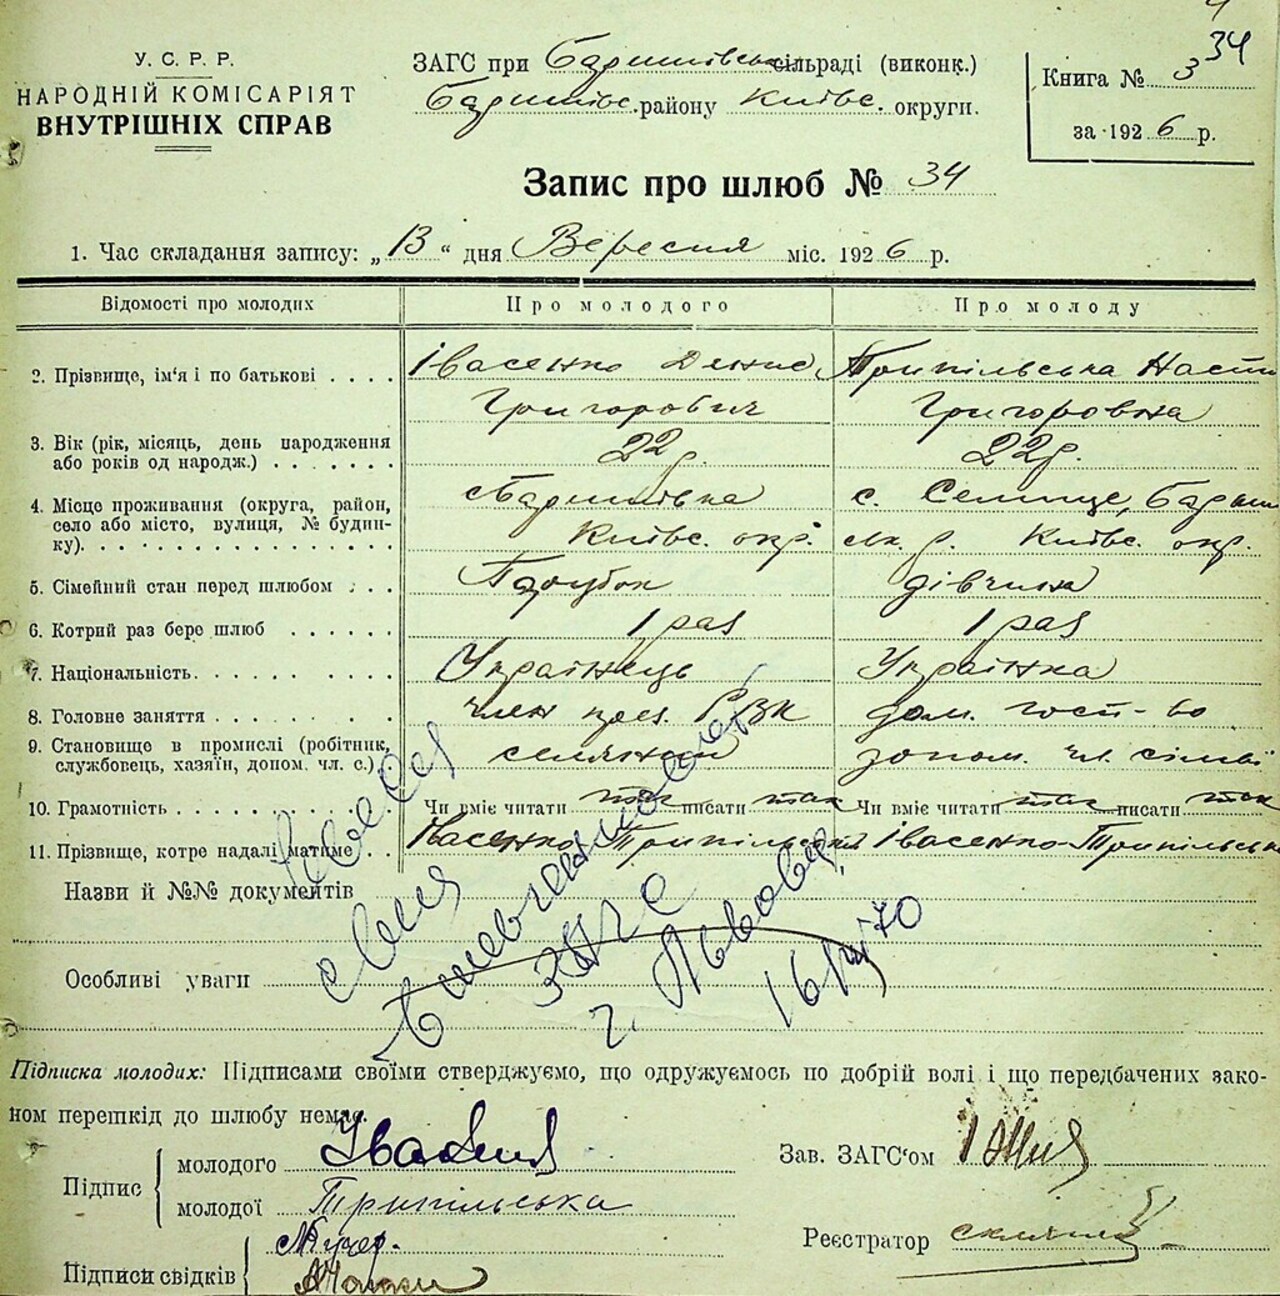 4
34
У. С. Р. Р.
НАРОДНІЙ КОМІСАРІЯТ
ВНУТРІШНІХ СПРАВ
ЗАГС при Баришівській сільраді (виконк.)
Баришівс. району Київс. округи.
Книга № 3
за 1926 р.
Запис про шлюб № 34
1. Час складання запису: „13“ дня Вересня міс. 1926 р.
Відомості про молодих
Про молодого
Про молоду
2. Прізвище, ім'я і по батькові
Івасенко Денис
Григорович
Трипільська Наст
Григоровна
3. Вік (рік, місяць, день народження
або років од народж.)
22 р.
22 р.
4. Місце проживання (округа, район,
село або місто, вулиця, № будин-
ку)
Баришівка
Київс. окр.
с. Селище, Бариш
р. Київс. окр.
5. Сімейний стан перед шлюбом
Парубок
дівчина
6. Котрий раз бере шлюб
1 раз
1 раз
7. Національність
Українець
Українка
8. Головне заняття
член през. РВК
дом. госп-во
9. Становище в промислі (робітник,
службовець, хазяїн, допом. чл. с.)
селянин
допом. чл. сімьї
10. Грамотність
Чи вміє читати так писати так
Чи вміє читати так писати так
11. Прізвище, котре надалі матиме
Івасенко-Трипільський
Івасенко-Трипільськ
Назви й №№ документів
Особливі уваги
в Шевченковский
ЗАГС
г. Львова
16/III 70
Підписка молодих: Підписами своїми стверджуємо, що одружуємось по добрій волі і що передбачених зако-
ном перешкід до шлюбу немає.
Підпис
молодого
молодої Трипільська
Підписи свідків
Кучер.
Зав. ЗАГС'ом
Реєстратор